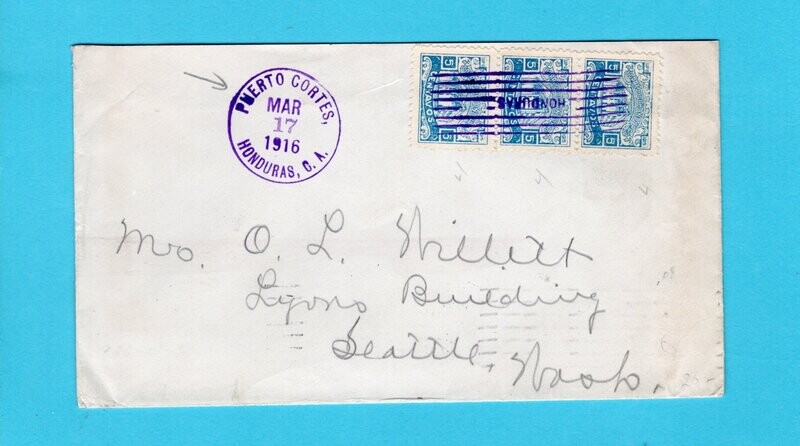 PUERTO CORTES,
MAR
17
1916
HONDURAS, C. A.
5 5 5
CENTAVOS
HONDURAS
Mrs. O. L. Willett
Lyons Building
Seattle, Wash.